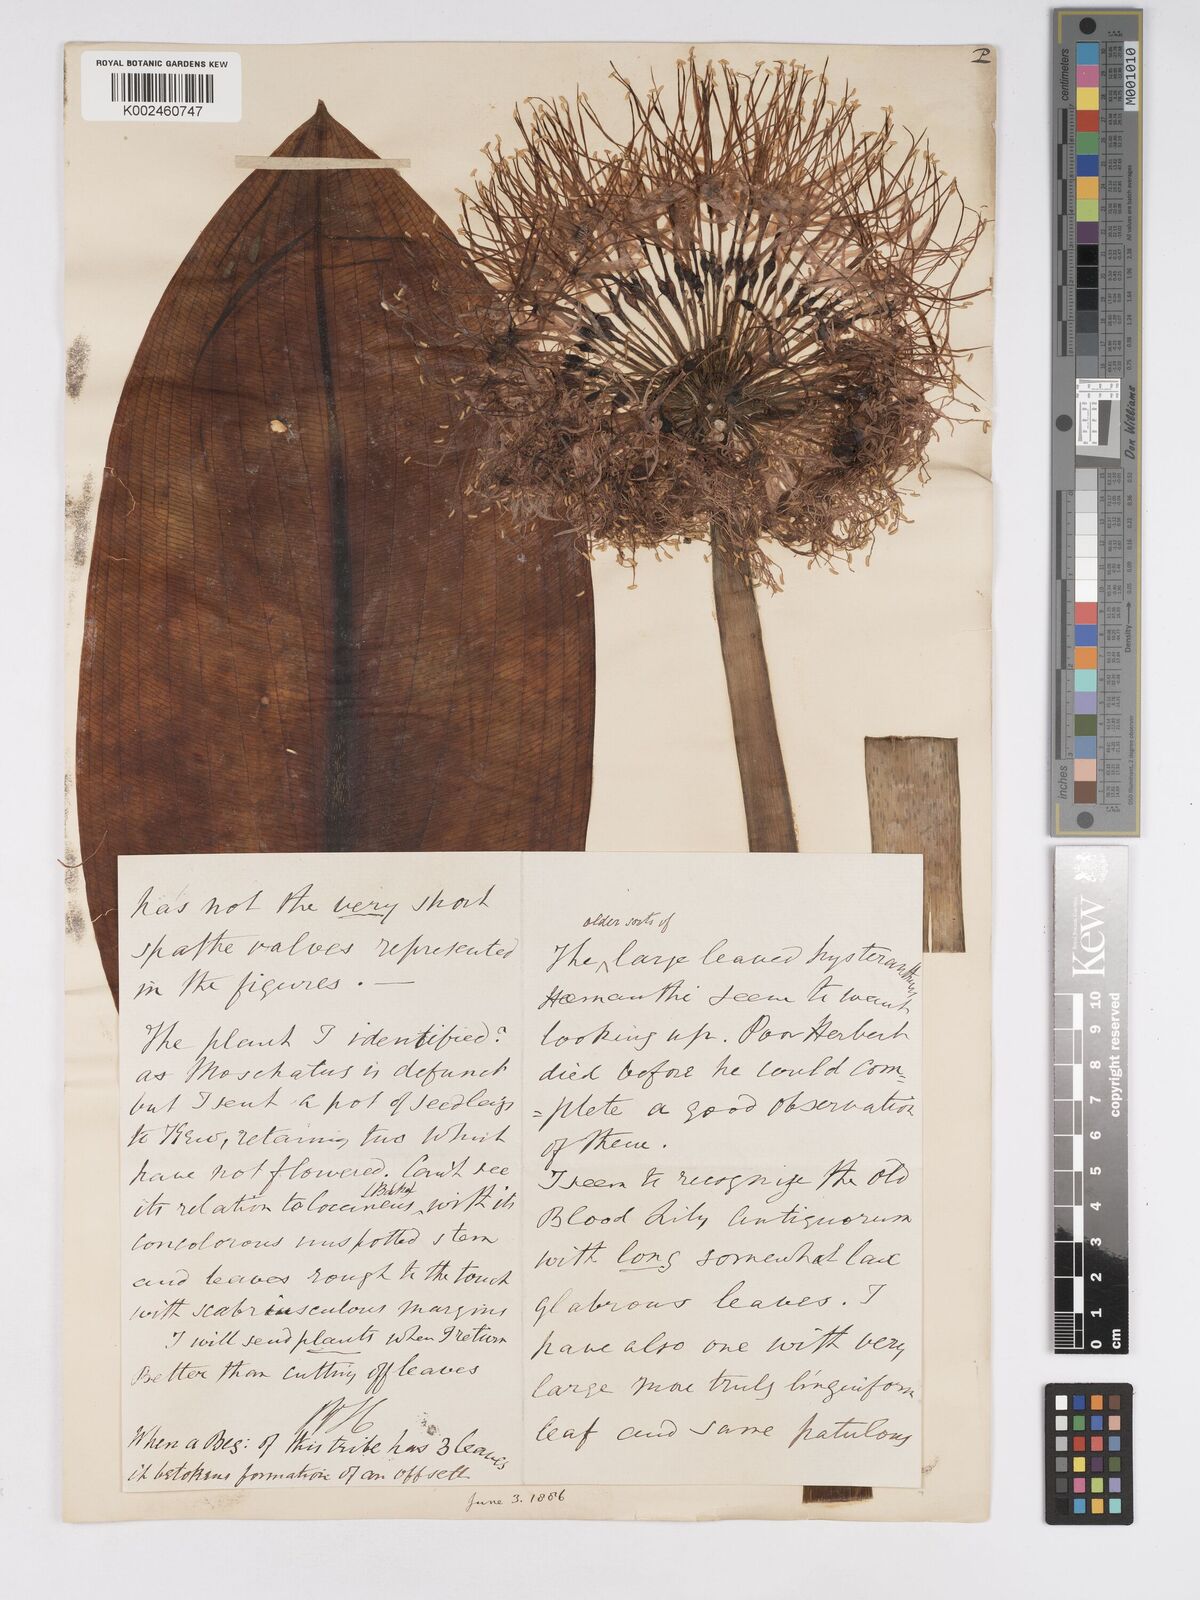 ROYAL BOTANIC GARDENS KEW
K002460747
P
has not the very short
spathe valves represented
in the figures. —
The plant I identified?
as Moschatus is defunct
but I sent a pot of seedlings
to Kew, retaining two which
have not flowered. Can't see
its relation to coccineus with its
concolorous unspotted stem
and leaves rough to the touch
with scabriusculous margins
I will send plants when I return
Better than cutting off leaves
When a Beg: of this tribe has 3 leaves
it betokens formation of an offsett
older sorts of
The large leaved hysteranthous
Hæmanthi seem to want
looking up. Poor Herbert
died before he could com=
=plete a good observation
of them.
I seem to recognize the old
Blood Lily Antiquorum
with long somewhat lax
glabrous leaves. I
have also one with very
large more truly linguiform
leaf and same patulous
June 3. 1886
centimeters
inches
M001010
Don Williams
Density
Kew
Royal Botanic Gardens
copyright reserved
0 1 2 3 4 5 6 7 8 9 10
cm